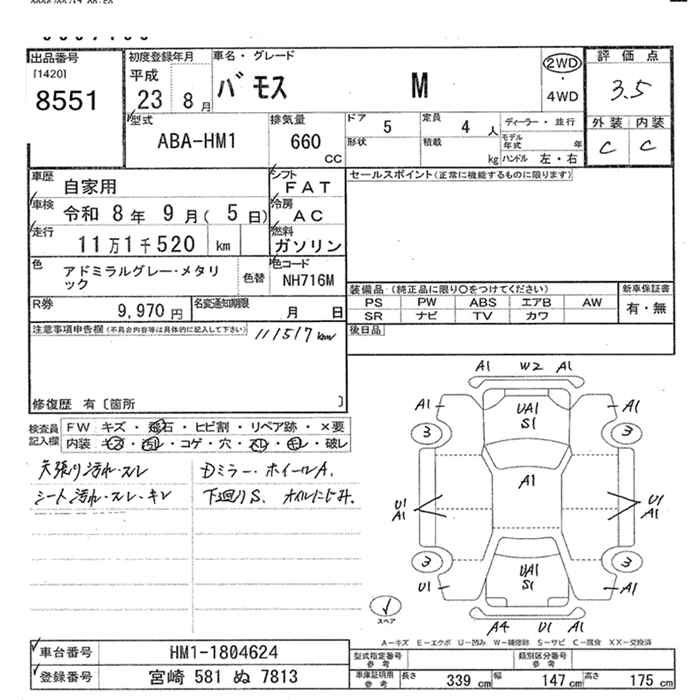 出品番号 初度登録年月 車名・グレード 評価点
[1420] 平成 バモス M 2WD 3.5
8551 23 8月 ・ 4WD
型式 排気量 ドア 5 定員 4 人 ディーラー・並行 外装 内装
ABA-HM1 660 形状 積載 モデル年式 年 C C
CC kg ハンドル 左・右
車歴 自家用 シフト FAT セールスポイント(正常に機能するものに限ります)
車検 令和 8年 9月( 5日) 冷房 AC
走行 11万1千520 km 燃料 ガソリン
色 アドミラルグレー・メタリ 色替 色コード
ック NH716M
装備品 (純正品に限り○をつけてください) 新車保証書
R券 9,970円 名変通知期限 月 日 PS PW ABS エアB AW 有・無
SR ナビ TV カワ
注意事項申告欄(不具合内容等は具体的に記入して下さい) 111517km 後日品
修復歴 有〔箇所 〕
検査員 FW キズ・飛石・ヒビ割・リペア跡・×要
記入欄 内装 キズ・汚レ・コゲ・穴・スレ・キレ・破レ
天張り汚れ・スレ Dミラー・ホイールA.
シート汚れ・スレ・キレ 下廻りS、オイルにじみ.
A1 W2 A1
A1 UA1 A1
S1
3 3
A1
U1 U1
A1 A1
3 3
UA1
U1 S1 A1
スペア
A4 U1 A1
A－キズ E－エクボ U－凹み W－補修跡 S－サビ C－腐食 XX－交換済
車台番号 HM1-1804624 型式指定番号 参考 類別区分番号 参考
登録番号 宮崎 581 ぬ 7813 車庫証明用 参考 長さ 339 cm 幅 147 cm 高さ 175 cm